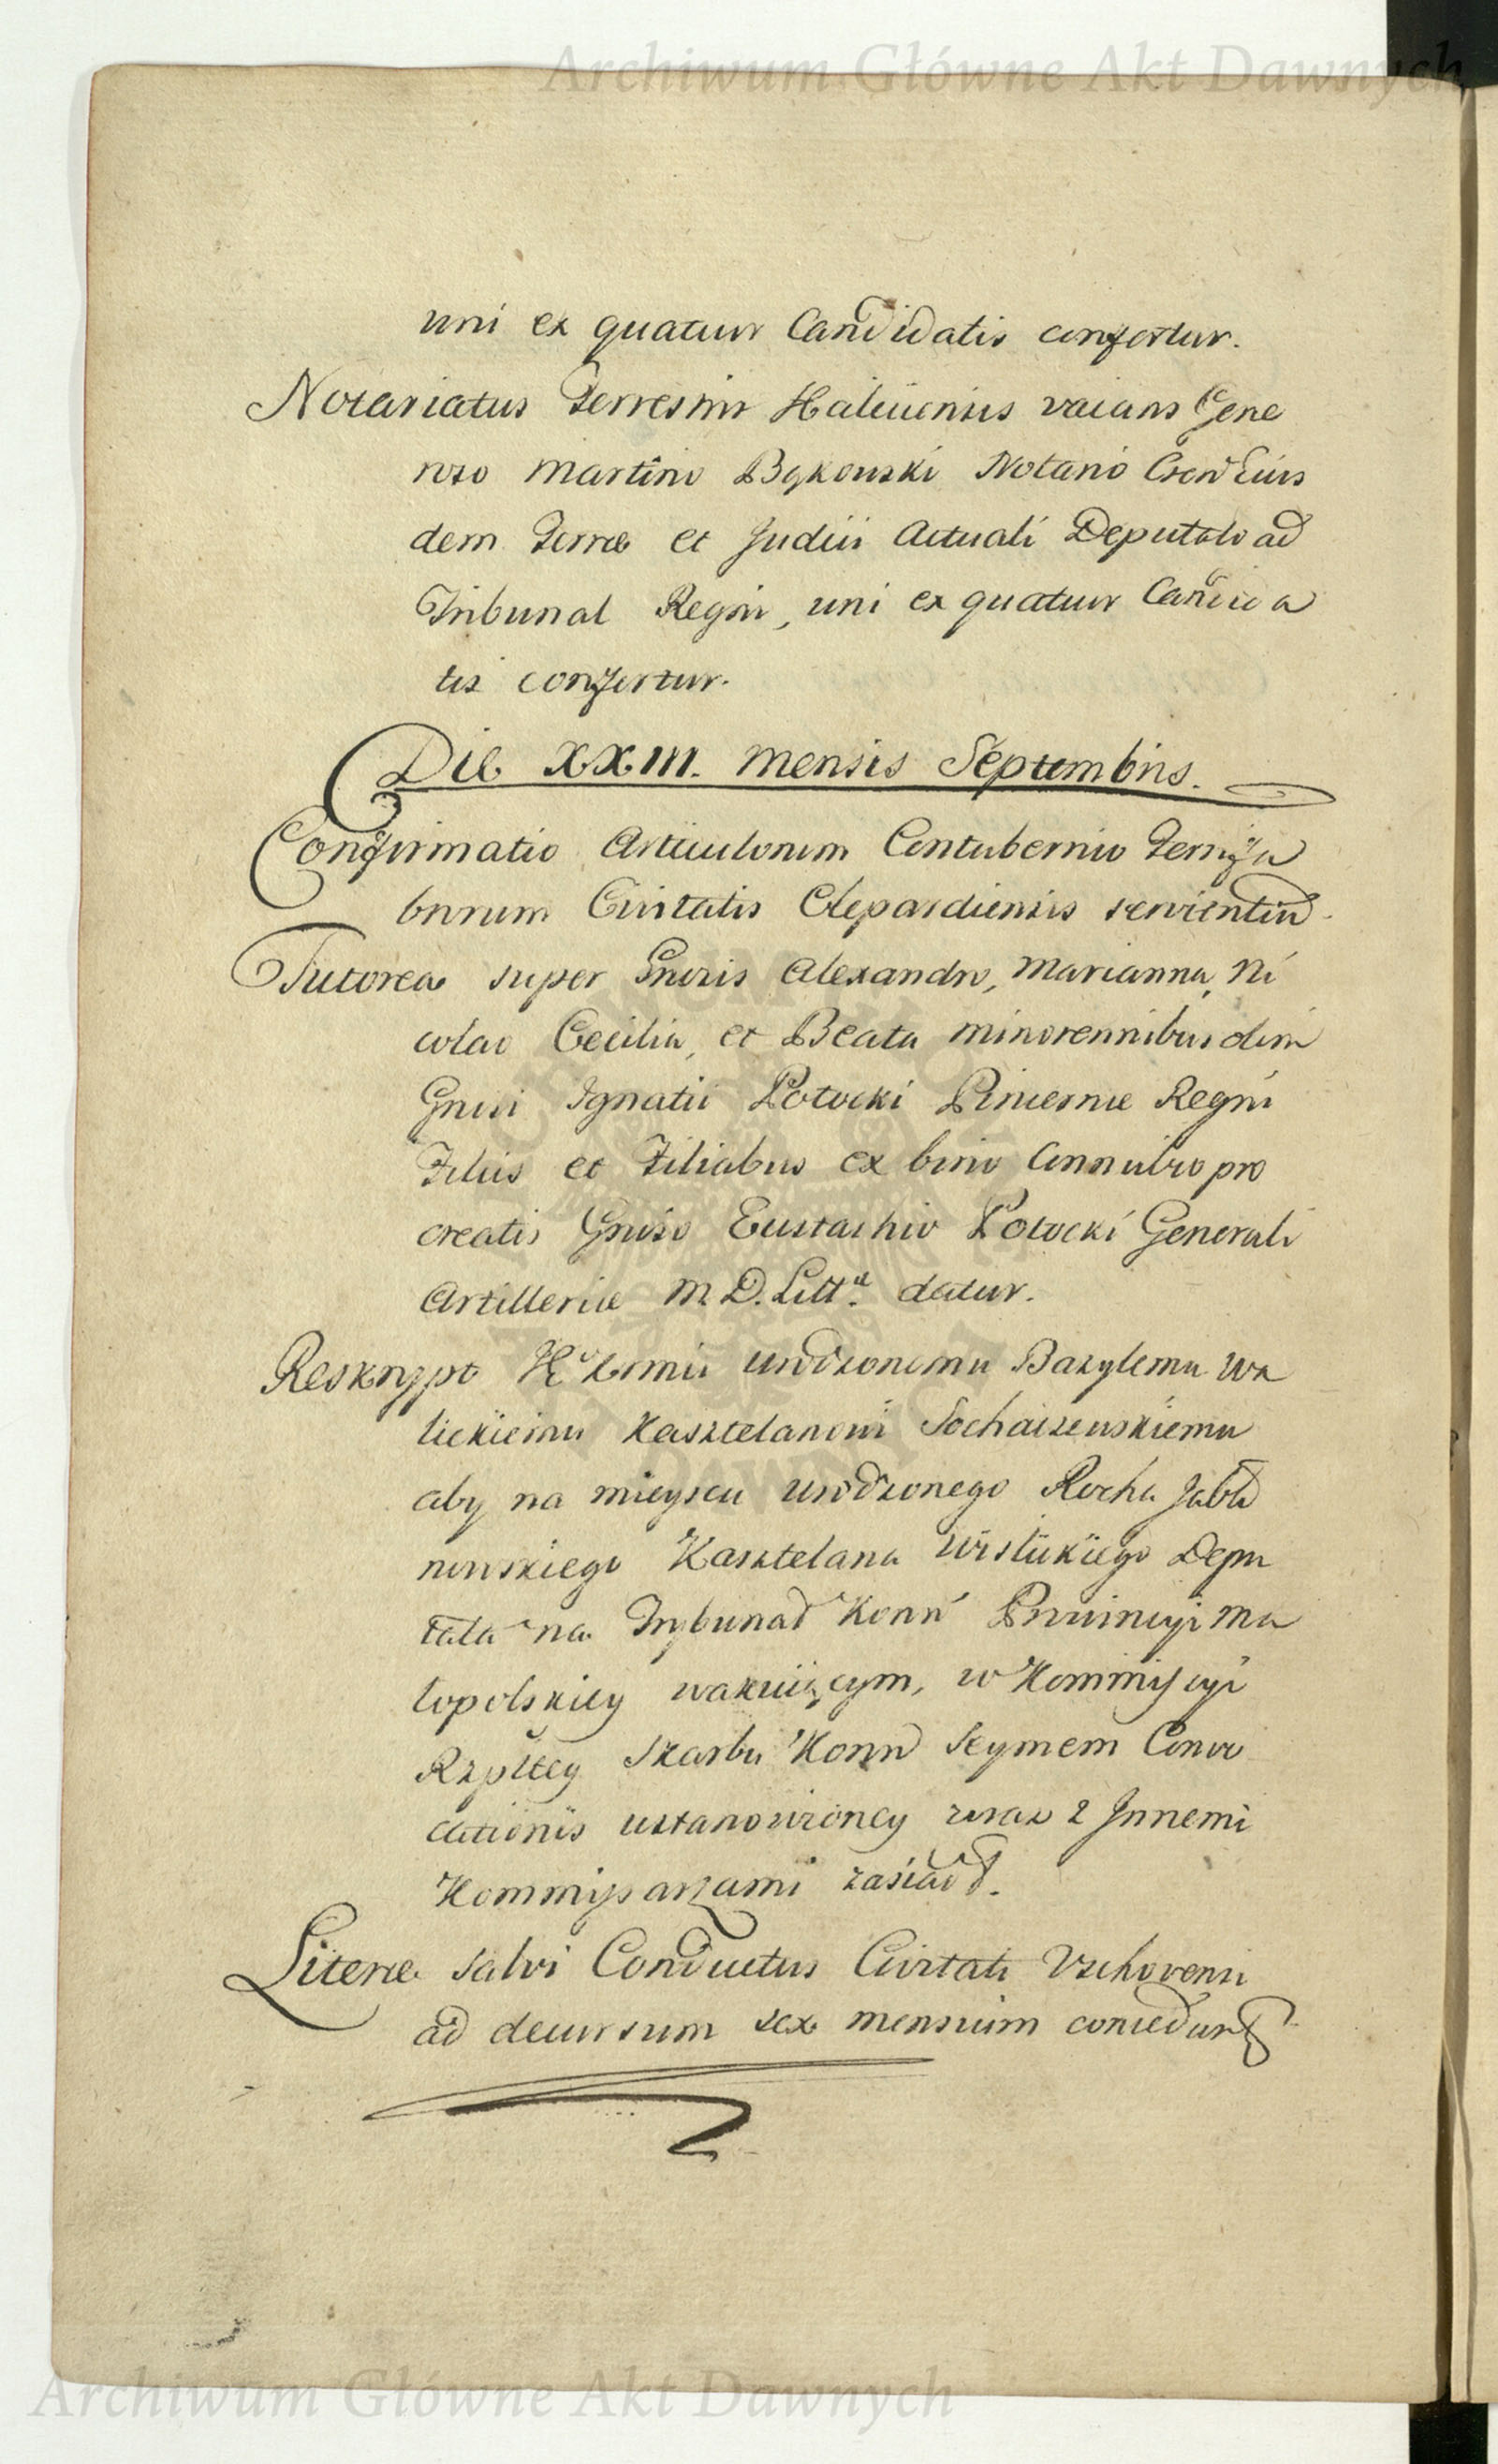 Archiwum Główne Akt Dawnych
uni ex quatuor Candidatis confertur.
Notariatus Terrestris Haliciensis vacans Gene
roso Martino Bykowski Notario Eius
dem Terræ et Judicii Actuali Deputato ad
Tribunal Regni, uni ex quatuor Candida
tis confertur.
Die XXIII. Mensis Septembris.
Confirmatio Articulorum Contubernio
brorum Civitatis Clepardiensis servientiu̅.
Tutorea super Gnosis Alexandro, Marianna, Ni
colao Cecilia, et Beata minorennibus olim
Gnosi Ignatii Potocki Pincernæ Regni
Filiis et Filiabus ex bino Connubio pro
creatis Gnoso Eustachio Potocki Generali
Artilleriæ M. D. Litt. datur.
Reskrypt Urodzonemu Bazylemu Wa
lickiemu Kasztelanowi Sochaczewskiemu
aby na mieyscu Urodzonego Rocha Jabło
nowskiego Kasztelana Wislickiego Depu
tata na Trybunał Konn Prowincyi Ma
łopolskiey wakuiącym, w Kommissyi
Rzpltey Skarbu Konn Seymem Convo
cationis ustanowioney wraz z Innemi
Kommissarzami zasiadł.
Literæ Salvi Conductus Civitati Vschovensi
ad decursum sex mensium conceduntur
Archiwum Główne Akt Dawnych